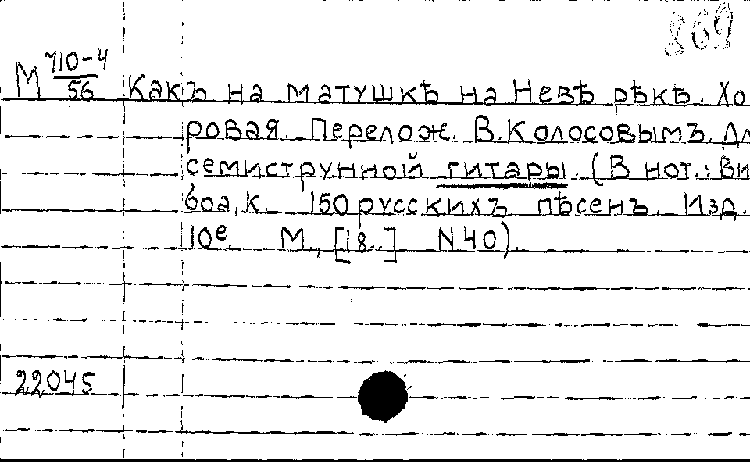 869
М 710-4/56 Какъ на матушкѣ на Невѣ рѣкѣ. Хо
ровая. Перелож. В. Колосовымъ. Дл
семиструнной гитары. (В нот.: Ви
боа, к. 150 русскихъ пѣсенъ. Изд.
10е М., [18..] N 40).
22045